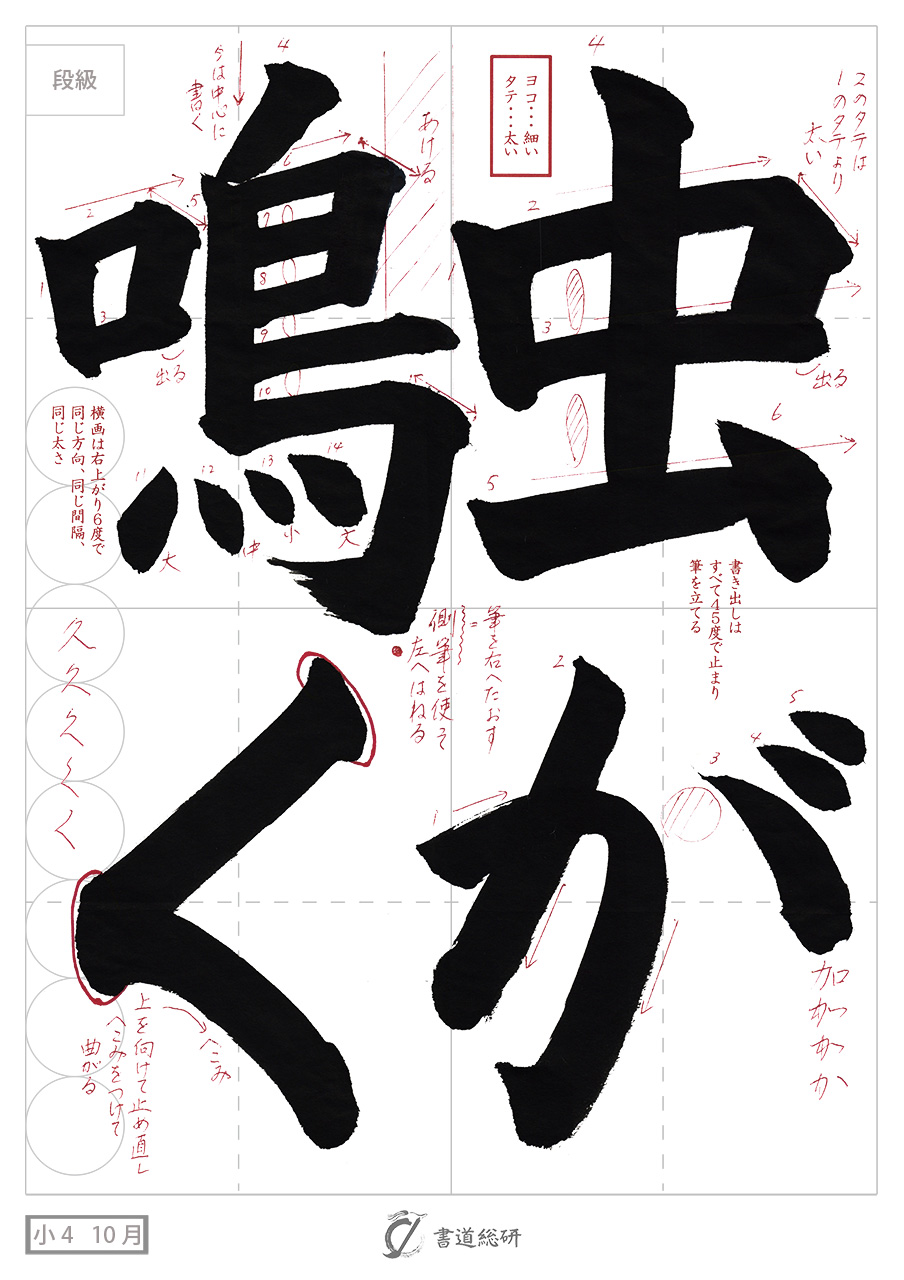 虫が
鳴く
段級
ヨコ…細い
タテ…太い
2のタテは
1のタテより
太い
あける
5は中心に
書く
出る
出る
横画は右上がり6度で
同じ方向、同じ間隔、
同じ太さ
大
中
小
大
書き出しは
すべて45度で止まり
筆を立てる
筆を右へたおす
側筆を使って
左へはねる
久久久くく
上を向けて止め直し
へこみをつけて
曲がる
へこみ
加
か
か
か
1
2
3
4
5
6
1
2
3
4
5
6
7
8
9
10
11
12
13
14
1
2
3
4
5
小4 10月
書道総研